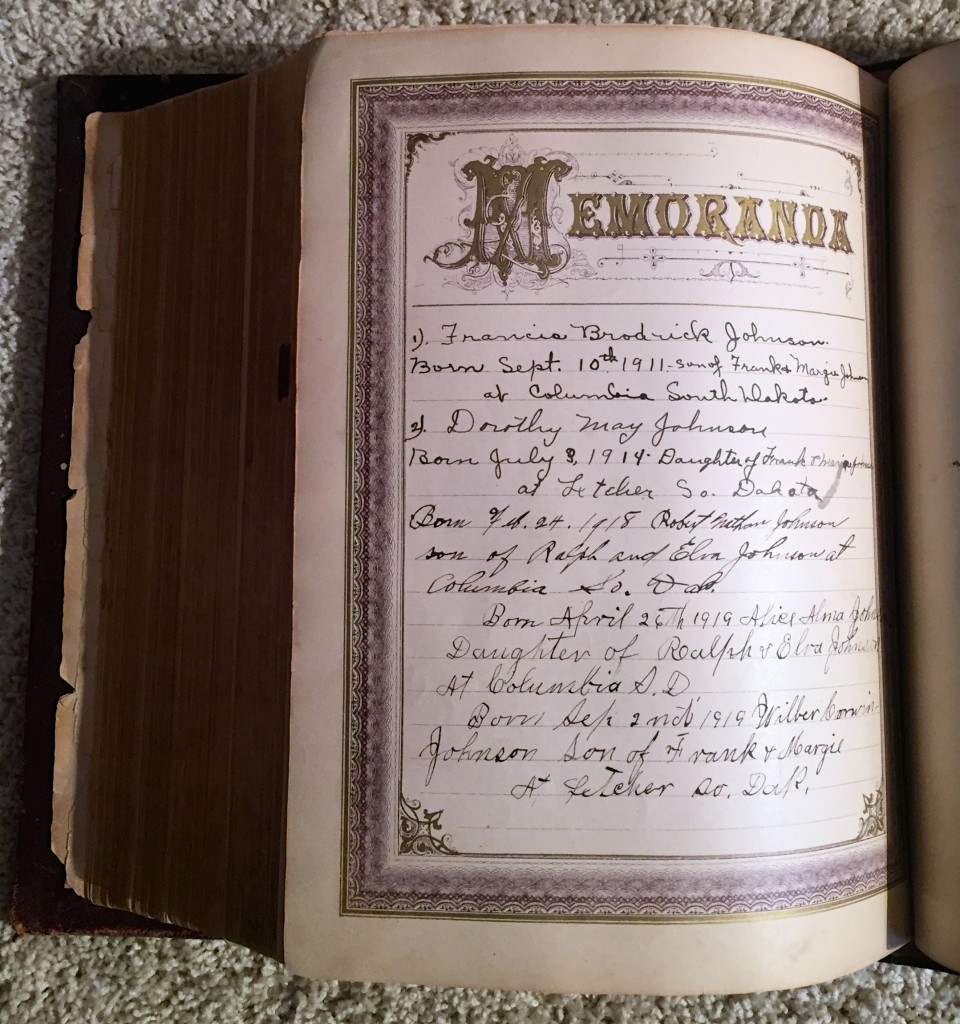 MEMORANDA
1). Francis Brodrick Johnson.
Born Sept. 10th 1911 - son of Frank & Margie Johnson
at Columbia South Dakota.
2). Dorothy May Johnson
Born July 3, 1914. Daughter of Frank & Margie Johnson
at Letcher So. Dakota
Born Feb. 24. 1918 Robert Nathan Johnson
son of Ralph and Elva Johnson at
Columbia So. Dak.
Born April 26th 1919 Alice Alma John
Daughter of Ralph & Elva Johnson
At Columbia S.D
Born Sep 2nd 1919 Wilber Corwin
Johnson Son of Frank & Margie
At Letcher So. Dak.